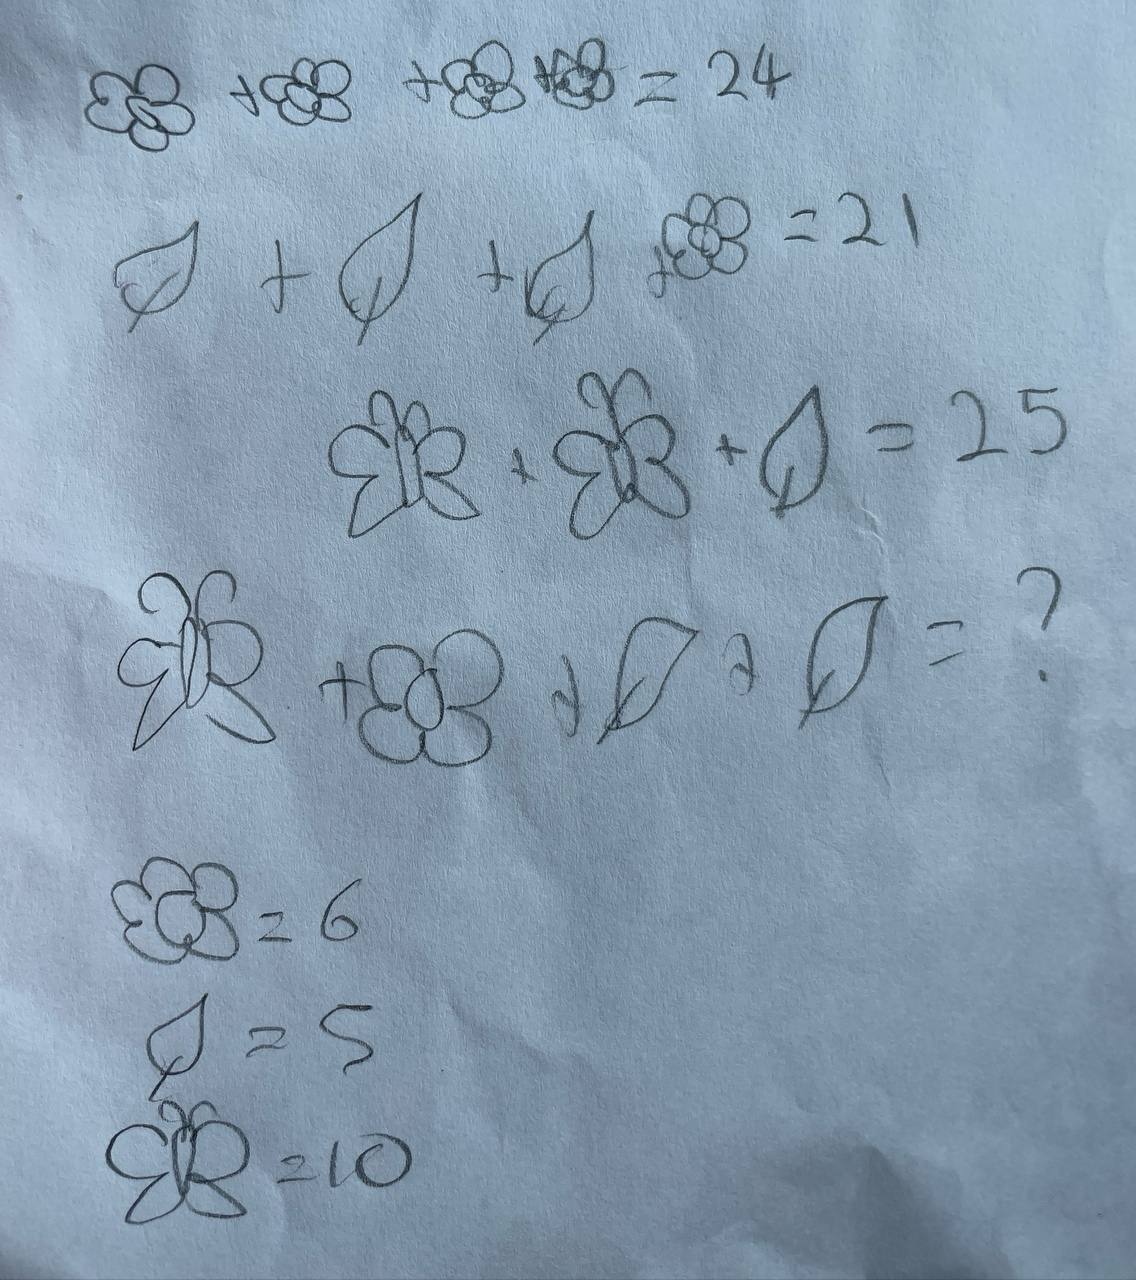 + + + = 24
+ + + = 21
+ + = 25
+ + + = ?
= 6
= 5
= 10